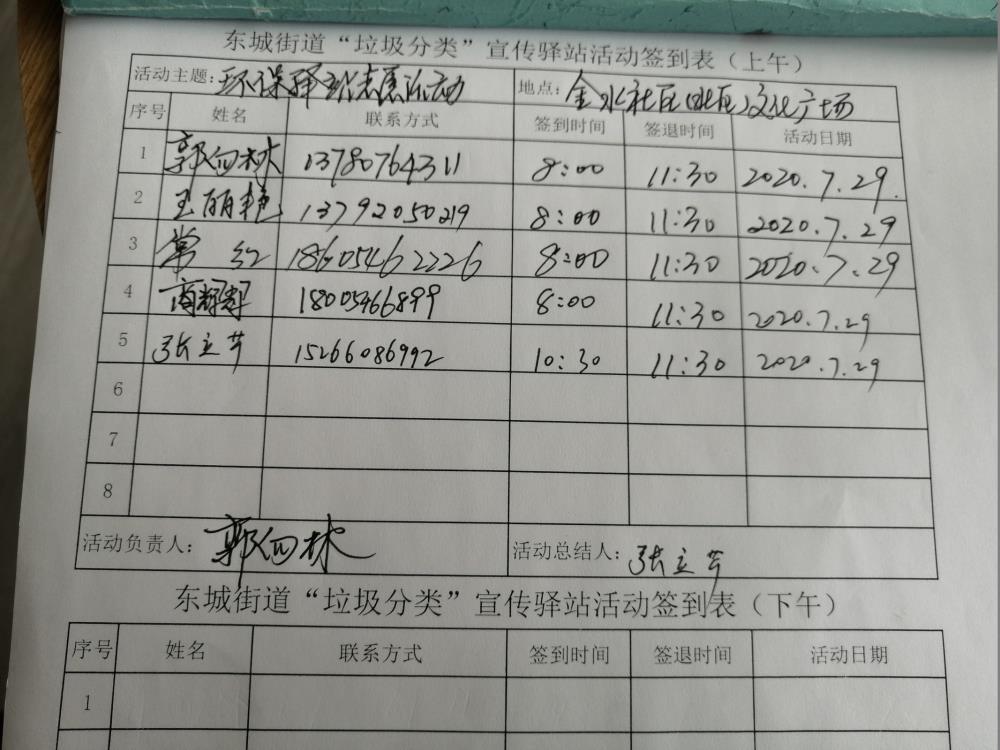 东城街道“垃圾分类”宣传驿站活动签到表（上午）
活动主题：环保驿站志愿活动 地点：金水社区（北区）文化广场
序号 姓名 联系方式 签到时间 签退时间 活动日期
1 郭向林 13780764311 8:00 11:30 2020.7.29.
2 王丽艳 13792050219 8:00 11:30 2020.7.29
3 常红 18605462226 8:00 11:30 2020.7.29
4 18005466899 8:00 11:30 2020.7.29
5 张立芹 15266086992 10:30 11:30 2020.7.29
6
7
8
活动负责人：郭向林 活动总结人：张立芹
东城街道“垃圾分类”宣传驿站活动签到表（下午）
序号 姓名 联系方式 签到时间 签退时间 活动日期
1